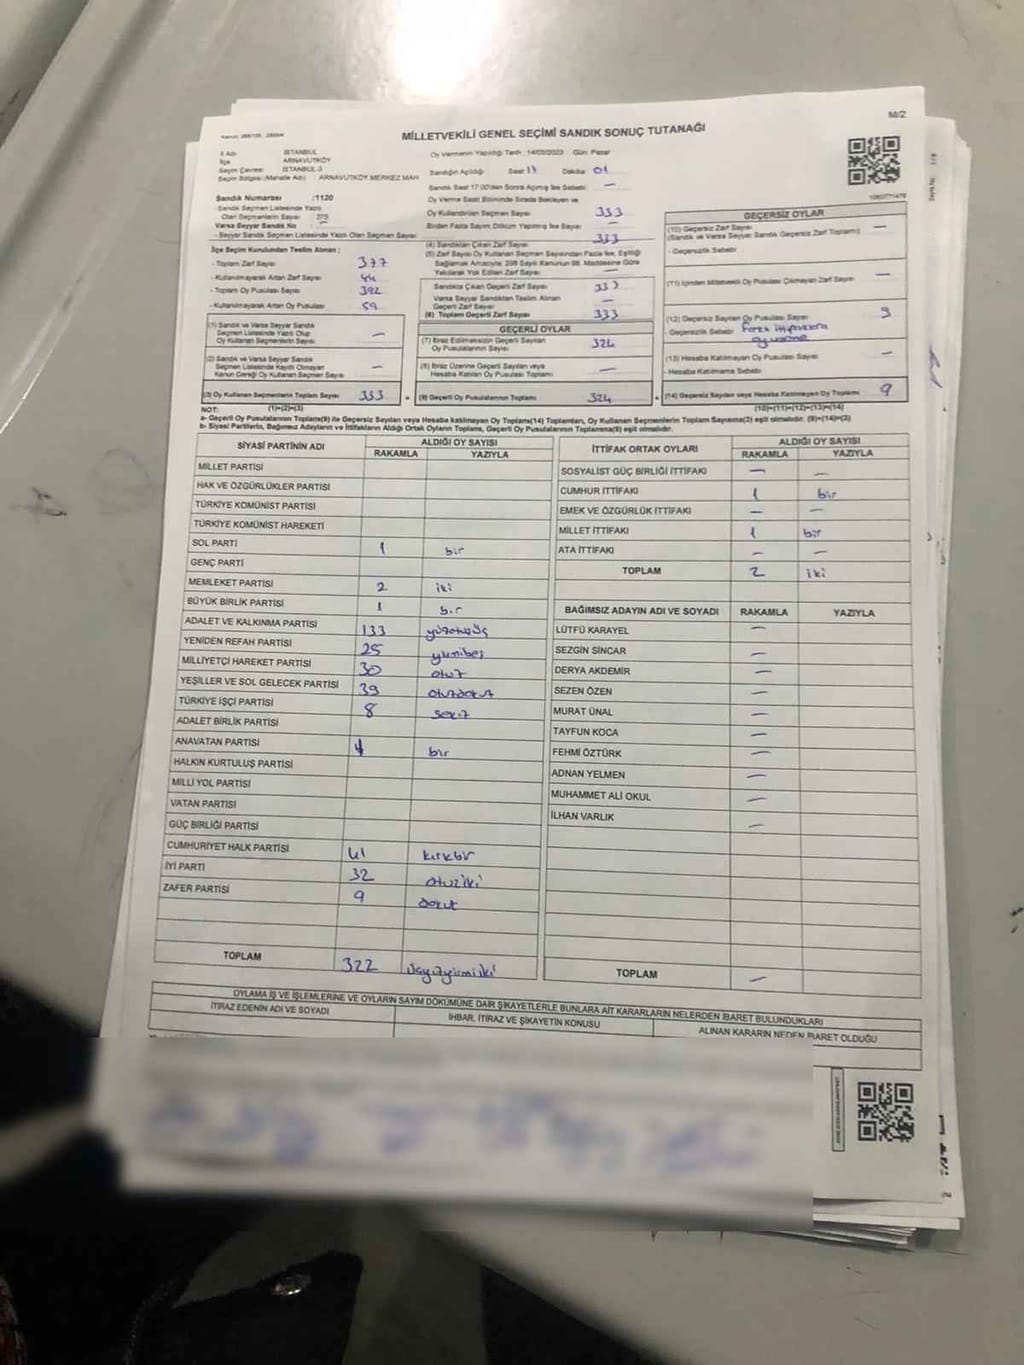 M/2
MİLLETVEKİLİ GENEL SEÇİMİ SANDIK SONUÇ TUTANAĞI
İl Adı İSTANBUL
İlçe ARNAVUTKÖY
Seçim Çevresi İSTANBUL-3
Seçim Bölgesi (Mahalle Adı) ARNAVUTKÖY MERKEZ MAH
Sandık Numarası :1120
Sandık Seçmen Listesinde Yazılı
Olan Seçmenlerin Sayısı 375
Varsa Seyyar Sandık No
- Seyyar Sandık Seçmen Listesinde Yazılı Olan Seçmen Sayısı
İlçe Seçim Kurulundan Teslim Alınan ;
- Toplam Zarf Sayısı 377
- Kullanılmayarak Artan Zarf Sayısı 44
- Toplam Oy Pusulası 392
- Kullanılmayarak Artan Oy Pusulası 59
(1) Sandık ve Varsa Seyyar Sandık
Seçmen Listesinde Yazılı Olup
Oy Kullanan Seçmenlerin Sayısı —
(2) Sandık ve Varsa Seyyar Sandık
Seçmen Listesinde Kaydı Olmayan
Kanun Gereği Oy Kullanan Seçmen Sayısı —
(3) Oy Kullanan Seçmenlerin Toplam Sayısı 333
(1)+(2)=(3)
Oy Vermenin Yapıldığı Tarih : 14/05/2023 Gün: Pazar
Sandığın Açıldığı Saat Dakika 01
Sandık Saat 17:00'den Sonra Açılmış İse Sebebi —
Oy Verme Saati Bitiminde Sırada Bekleyen ve
Oy Kullandırılan Seçmen Sayısı 333
Birden Fazla Sayım Döküm Yapılmış İse Sayısı —
(4) Sandıktan Çıkan Zarf Sayısı 333
(5) Zarf Sayısı Oy Kullanan Seçmen Sayısından Fazla İse, Eşitliği
Sağlamak Amacıyla; 298 Sayılı Kanunun 98. Maddesine Göre
Yakılarak Yok Edilen Zarf Sayısı —
Sandıkta Çıkan Geçerli Zarf Sayısı 333
Varsa Seyyar Sandıktan Teslim Alınan
Geçerli Zarf Sayısı —
(6) Toplam Geçerli Zarf Sayısı 333
GEÇERLİ OYLAR
(7) İtiraz Edilmeksizin Geçerli Sayılan
Oy Pusulalarının Sayısı 324
(8) İtiraz Üzerine Geçerli Sayılan veya
Hesaba Katılan Oy Pusulası Toplamı —
(9) Geçerli Oy Pusulalarının Toplamı 324
GEÇERSİZ OYLAR
(10) Geçersiz Zarf Sayısı
(Sandık ve Varsa Seyyar Sandık Geçersiz Zarf Toplamı) —
- Geçersizlik Sebebi
(11) İçinden Milletvekili Oy Pusulası Çıkmayan Zarf Sayısı —
(12) Geçersiz Sayılan Oy Pusulası Sayısı 9
- Geçersizlik Sebebi
(13) Hesaba Katılmayan Oy Pusulası Sayısı —
- Hesaba Katılmama Sebebi
(14) Geçersiz Sayılan veya Hesaba Katılmayan Oy Toplamı 9
(10)+(11)+(12)+(13)=(14)
NOT:
a- Geçerli Oy Pusulalarının Toplamı(9) ile Geçersiz Sayılan veya Hesaba katılmayan Oy Toplamı(14) Toplamları, Oy Kullanan Seçmenlerin Toplam Sayısına(3) eşit olmalıdır. (9)+(14)=(3)
b- Siyasi Partilerin, Bağımsız Adayların ve İttifakların Aldığı Ortak Oyların Toplamı, Geçerli Oy Pusulalarının Toplamına(9) eşit olmalıdır.
SİYASİ PARTİNİN ADI ALDIĞI OY SAYISI
RAKAMLA YAZIYLA
MİLLET PARTİSİ
HAK VE ÖZGÜRLÜKLER PARTİSİ
TÜRKİYE KOMÜNİST PARTİSİ
TÜRKİYE KOMÜNİST HAREKETİ
SOL PARTİ 1 bir
GENÇ PARTİ
MEMLEKET PARTİSİ 2 iki
BÜYÜK BİRLİK PARTİSİ 1 bir
ADALET VE KALKINMA PARTİSİ 133 yüzotuzüç
YENİDEN REFAH PARTİSİ 25 yirmibeş
MİLLİYETÇİ HAREKET PARTİSİ 30 otuz
YEŞİLLER VE SOL GELECEK PARTİSİ 39 otuzdokuz
TÜRKİYE İŞÇİ PARTİSİ 8 sekiz
ADALET BİRLİK PARTİSİ
ANAVATAN PARTİSİ 1 bir
HALKIN KURTULUŞ PARTİSİ
MİLLİ YOL PARTİSİ
VATAN PARTİSİ
GÜÇ BİRLİĞİ PARTİSİ
CUMHURİYET HALK PARTİSİ 41 kırkbir
İYİ PARTİ 32 otuziki
ZAFER PARTİSİ 9 dokuz
TOPLAM 322 üçyüzyirmiiki
İTTİFAK ORTAK OYLARI ALDIĞI OY SAYISI
RAKAMLA YAZIYLA
SOSYALİST GÜÇ BİRLİĞİ İTTİFAKI — —
CUMHUR İTTİFAKI 1 bir
EMEK VE ÖZGÜRLÜK İTTİFAKI — —
MİLLET İTTİFAKI 1 bir
ATA İTTİFAKI — —
TOPLAM 2 iki
BAĞIMSIZ ADAYIN ADI VE SOYADI RAKAMLA YAZIYLA
LÜTFÜ KARAYEL —
SEZGİN SİNCAR —
DERYA AKDEMİR —
SEZEN ÖZEN —
MURAT ÜNAL —
TAYFUN KOCA —
FEHMİ ÖZTÜRK —
ADNAN YELMEN —
MUHAMMET ALİ OKUL —
İLHAN VARLIK —
TOPLAM —
OYLAMA İŞ VE İŞLEMLERİNE VE OYLARIN SAYIM DÖKÜMÜNE DAİR ŞİKAYETLERLE BUNLARA AİT KARARLARIN NELERDEN İBARET BULUNDUKLARI
İTİRAZ EDENİN ADI VE SOYADI İHBAR, İTİRAZ VE ŞİKAYETİN KONUSU ALINAN KARARIN NEDEN İBARET OLDUĞU